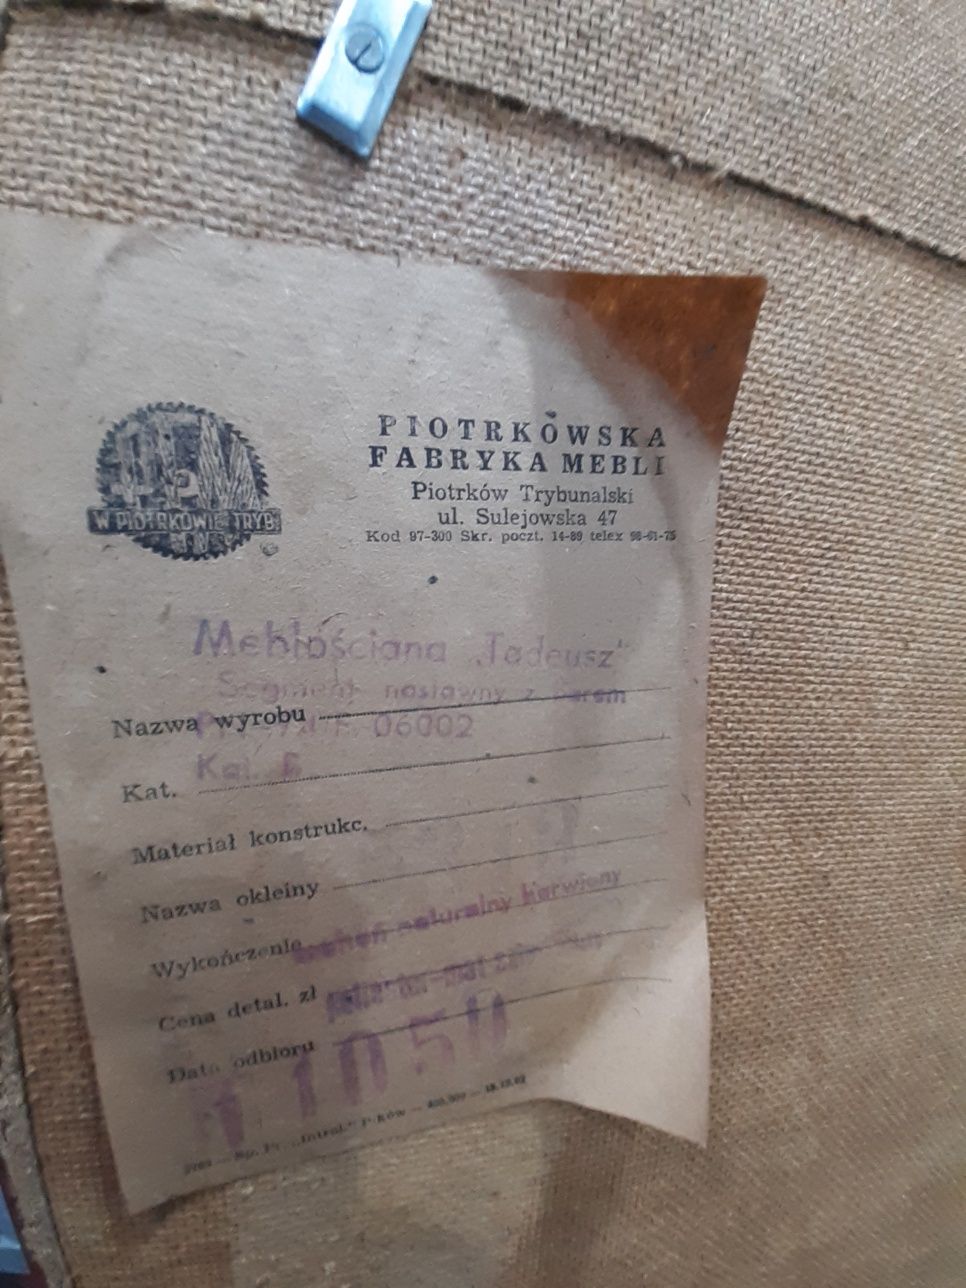 W PIOTRKOWIE TRYB.
PIOTRKOWSKA
FABRYKA MEBLI
Piotrków Trybunalski
ul. Sulejowska 47
Kod 97-300 Skr. poczt. 14-89 telex 98-61-75
Meblościana „Tadeusz"
Segment nastawny z barem
Nazwa wyrobu
06002
Kat.
Kat.
Materiał konstrukc.
Nazwa okleiny
Wykończenie
naturalny barwiony
Cena detal. zł
Data odbioru
11050